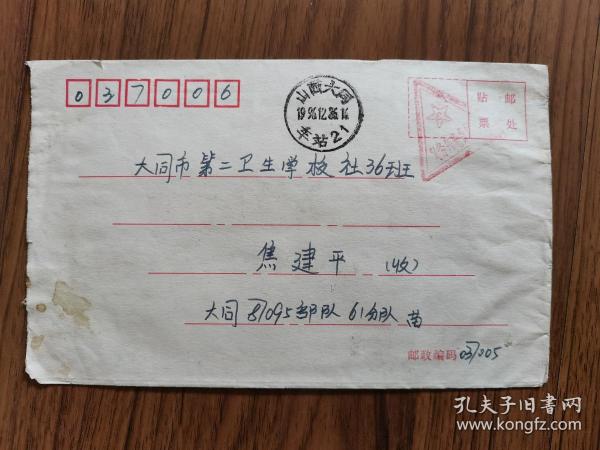 037006
山西大同
车站21
贴邮
票处
大同市第二卫生学校社36班
焦建平 (收)
大同81095部队61分队 苗
邮政编码 037005
孔夫子旧书网
www.kongfz.com